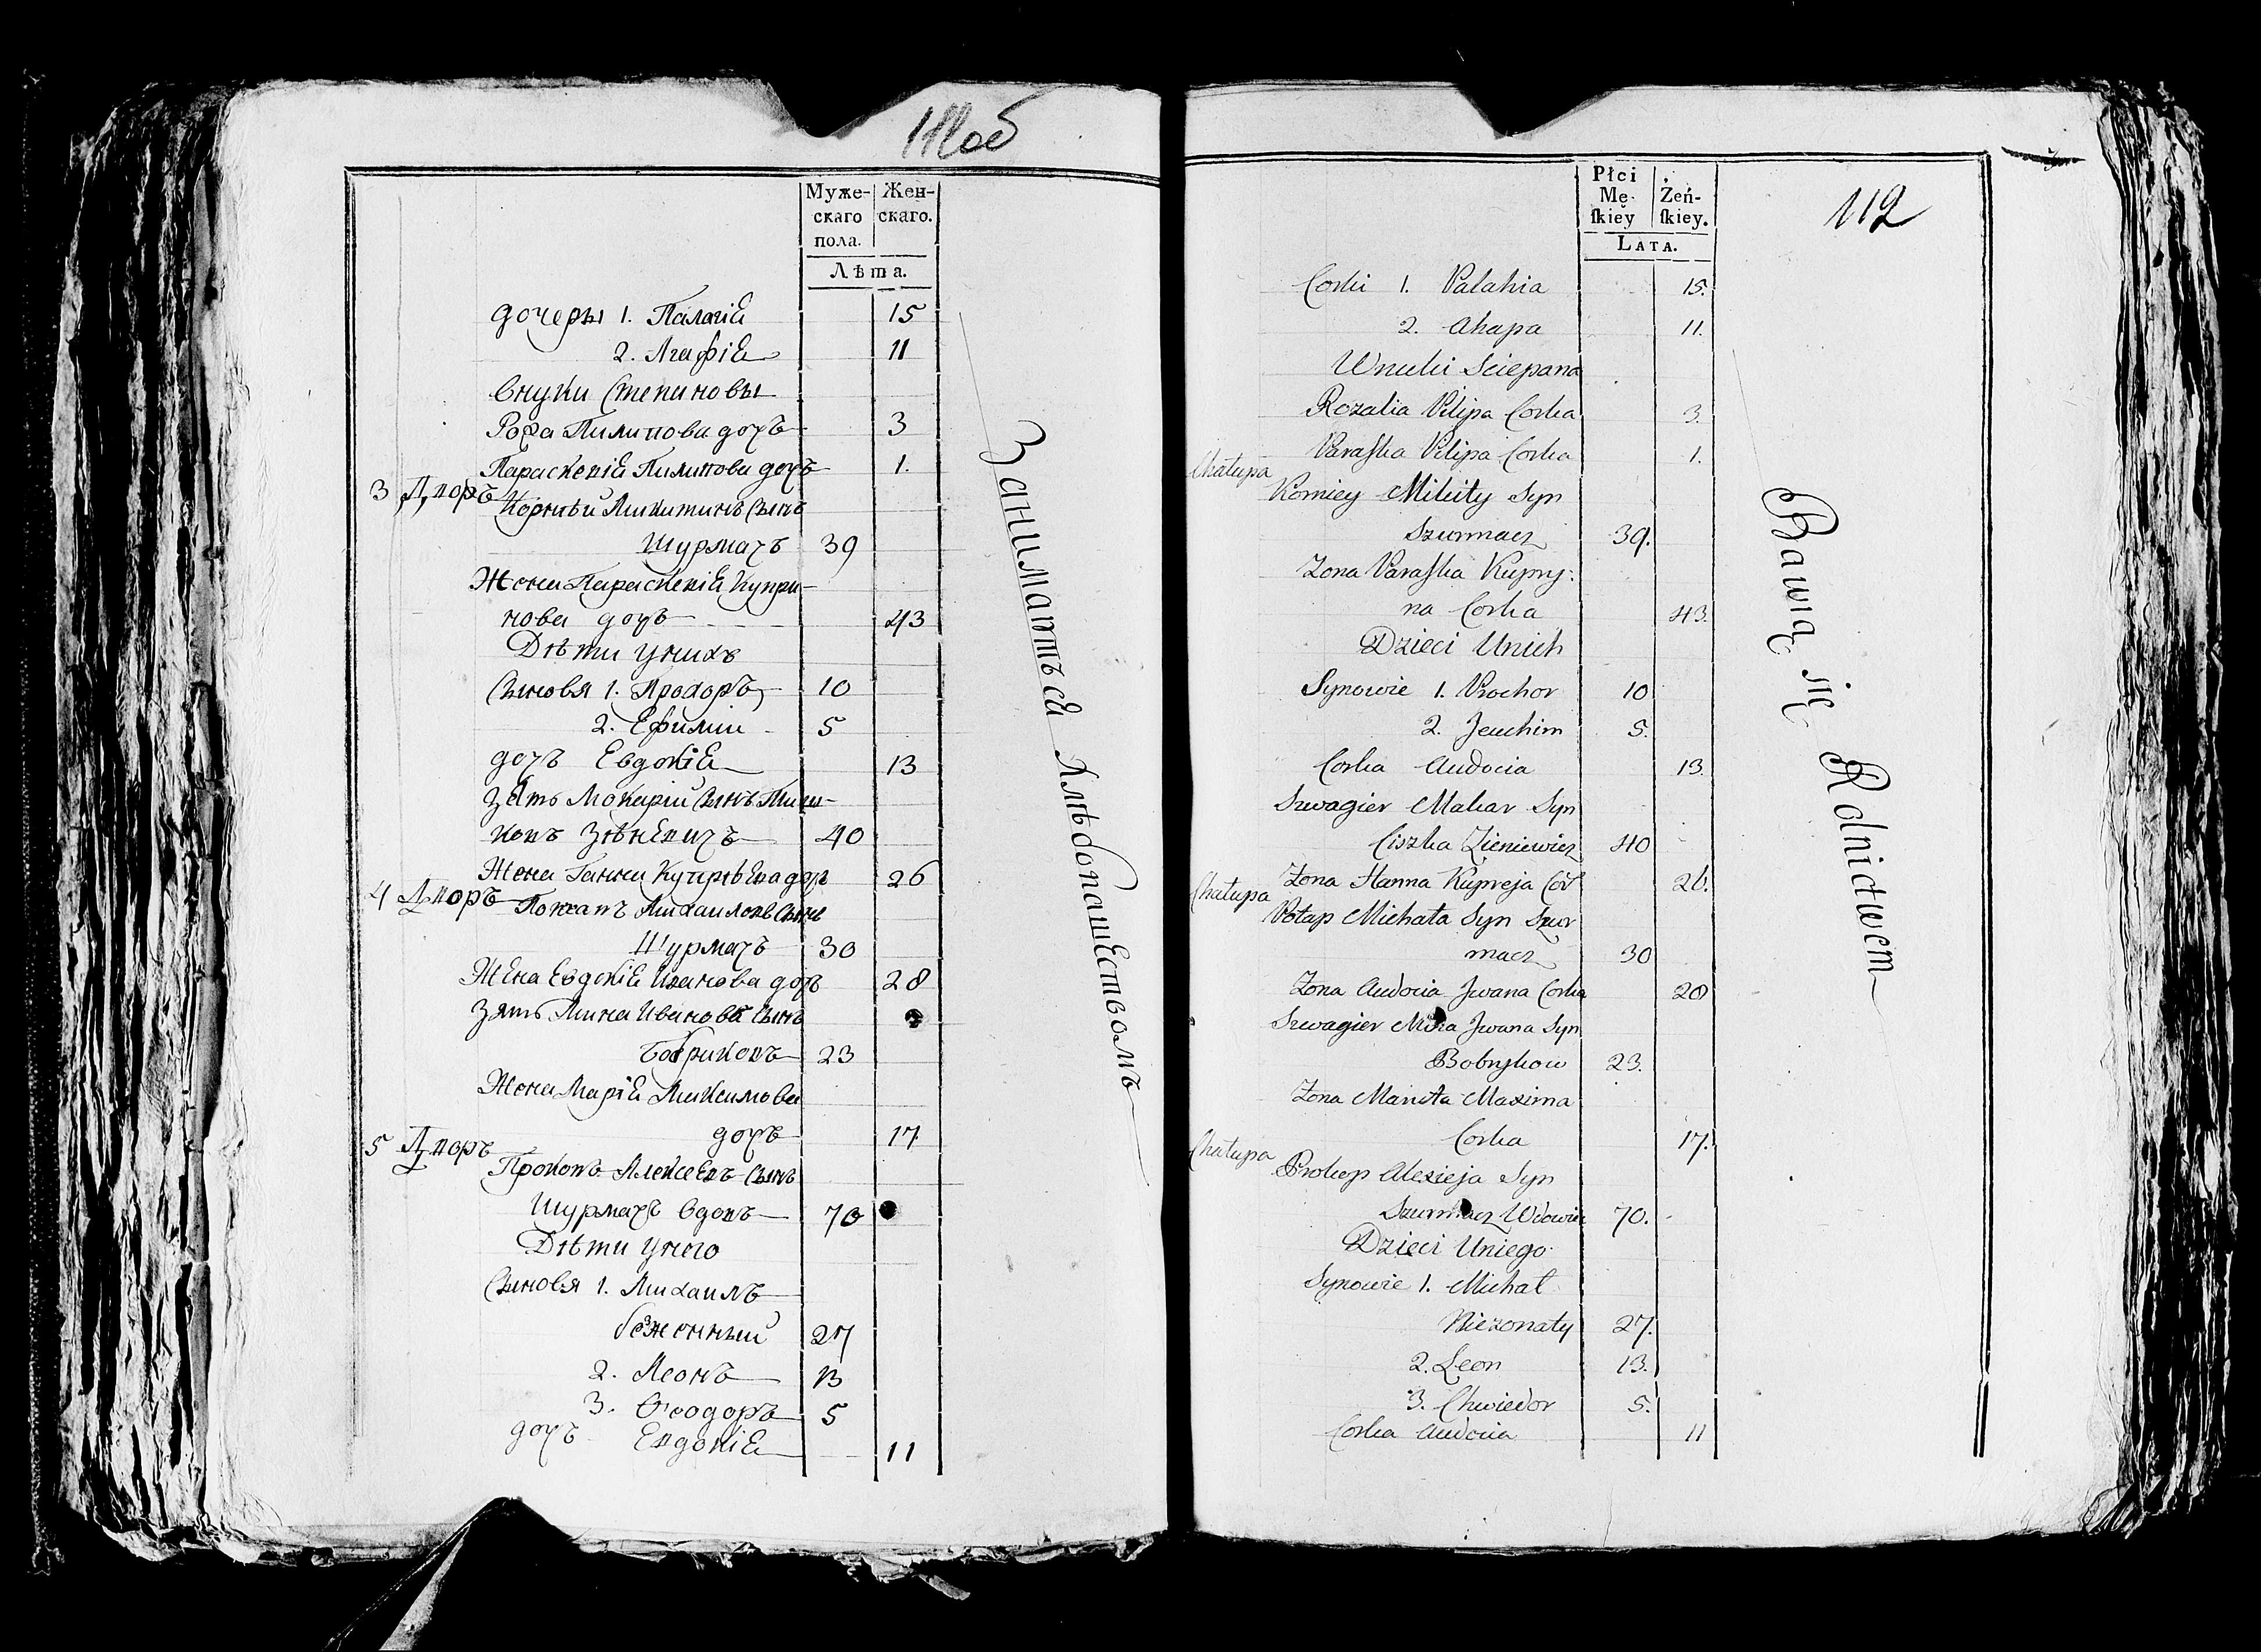 111об
Муже-
скаго
пола.
Жен-
скаго.
Лѣта.
дочеры 1. Палагiя 15
2. Агафiя 11
внуки Степановы
Роза Пилипова дочъ 3
Параскевiя Пилипова дочъ 1.
3 Дворъ
Корнѣй Микитинъ Сынъ
Шурмачъ 39
Жена Параскевiя Купри-
нова дочъ 43
Дѣти унихъ
Сыновя 1. Прохоръ 10
2. Ефимiй 5
дочъ Евдокiя 13
Зять Макарiй Сынъ Тиш-
ковъ Зѣневичъ 40
Жена Ганна Купрѣева дочъ 26
4 Дворъ
Потапъ Михайловъ Сынъ
Шурмачъ 30
Жена Евдокiя Иванова дочъ 28
Зять Мина Ивановъ Сынъ
Бобриковъ 23
Жена Марiя Максимова
дочъ 17
5 Дворъ
Прокопъ Алексеевъ Сынъ
Шурмачъ вдовъ 70
Дѣти унего
Сыновя 1. Михаилъ
безженный 27
2. Леонъ 13
3. Ѳеодоръ 5
дочъ Евдокiя 11
Заниматься Хлѣбопашествомъ
112
Płci
Mę-
ſkiey
Żeń-
ſkiey.
LATA.
Corki 1. Palahia 15.
2. Ahapa 11.
Wnuki Sciepana
Rozalia Pilipa Corka 3.
Paraſka Pilipa Corka 1.
Chałupa
Korniey Mikity Syn
Szurmacz 39.
Zona Paraſka Kupry:
na Corka 43.
Dzieci Unich
Synowie 1. Prochor 10
2. Jeuchim 5.
Corka Audocia 13.
Szwagier Makar Syn
Ciszka Zieniewicz 40
Zona Hanna Kupreja Cór 26.
Chałupa
Potap Michała Syn Szur
macz 30
Zona Audocia Jwana Corka 28
Szwagier Mina Jwana Syn
Bobrykow 23.
Zona Maruta Maxima
Corka 17.
Chałupa
Prokop Alexieja Syn
Szurmacz Wdowiec 70.
Dzieci Uniego
Synowie 1. Michał
Niezonaty 27.
2. Leon 13.
3. Chwiedor 5.
Corka Audocia 11
Bawią się Rolnictwem